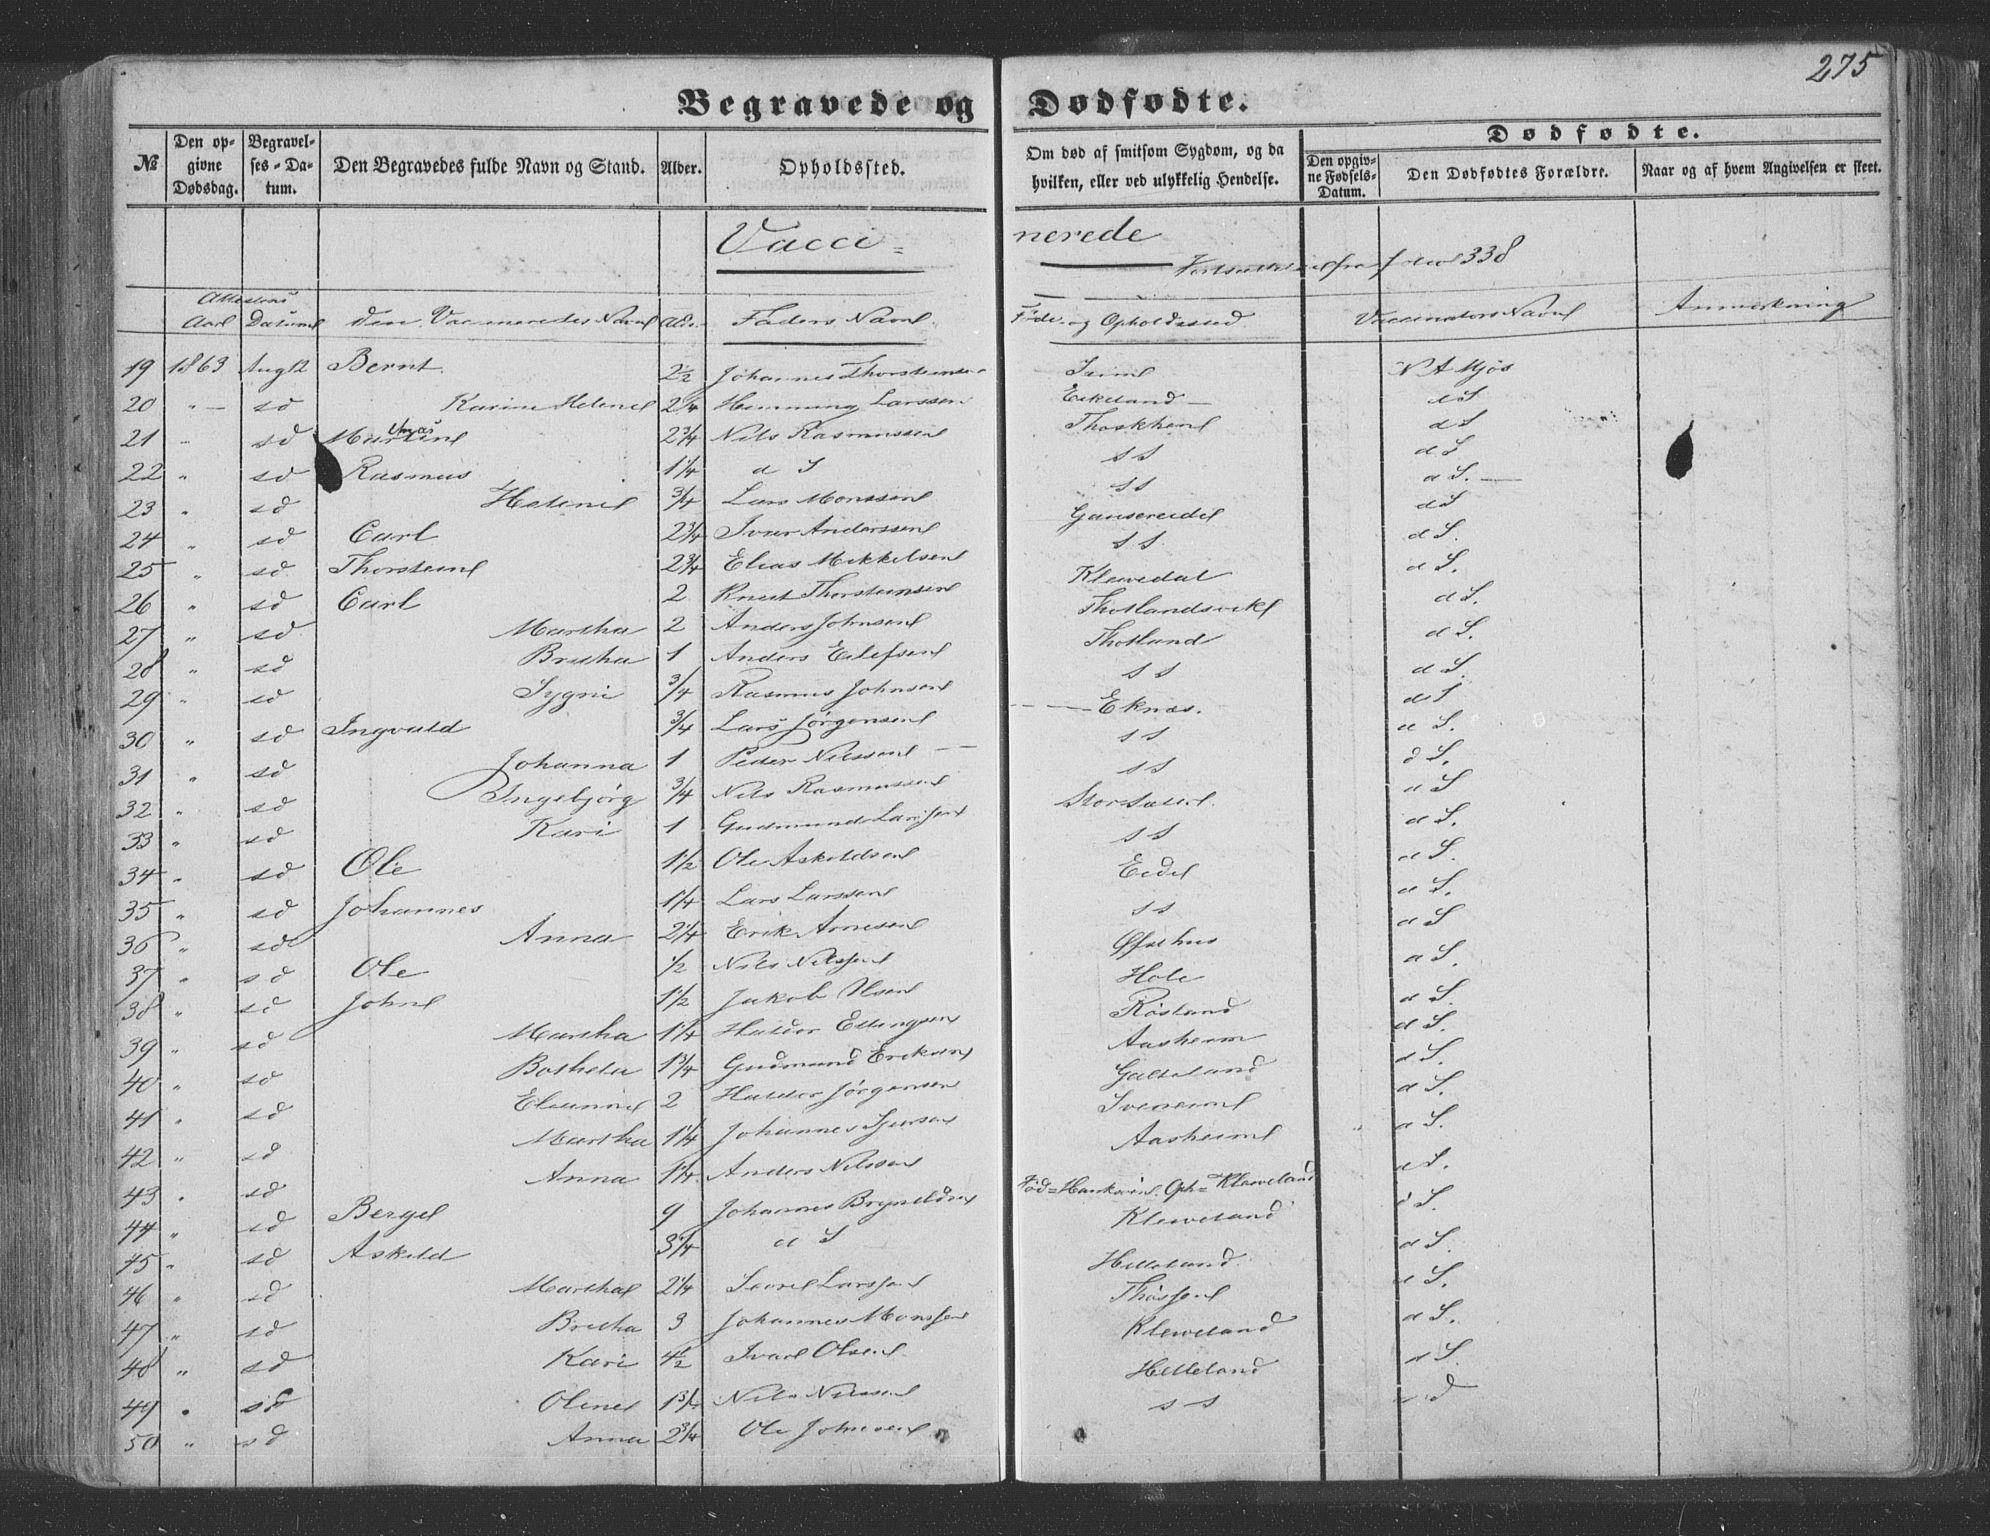 275
Begravede og Dødfødte.
№ Den opgivne Dødsdag. Begravelses-Datum. Den Begravedes fulde Navn og Stand. Alder. Opholdssted. Om død af smitsom Sygdom, og da hvilken, eller ved ulykkelig Hendelse. Dødfødte. Den opgivne Fødsels-Datum. Den Dødfødtes Forældre. Naar og af hvem Angivelsen er skeet.
Vacci= nerede
Fortsættelse fra folio 338
Attestens
Aar Datum Den Vaccineredes Navn Alder Faders Navn Føde og Opholdssted Vaccinators Navn Anmerkning
19 1863 Aug 12 Bernt 2½ Johannes Thorsteinsen N A Mjøs
20 " sd Karine Helene 2¼ Henning Larssen Eikeland dS
21 " sd Martin 2¾ Nils Rasmussen dS
22 " sd Rasmus 1¼ d S s s dS
23 " sd Helene ¾ Lars Monssen s s dS.
24 " sd Carl 2¾ Ivar Anderssen Gausereidet dS
25 " sd Thorstein 2¾ Elias Mikkelsen s s dS.
26 " sd Carl 2 Knut Thorsteinsen Klevedal dS.
27 " sd Martha 2 Anders Johnsen Thotlandsvik dS.
28 " sd Britha 1 Anders Eilefsen Thotland dS.
29 " sd Sygni ¾ Rasmus Johnsen s s dS
30 " sd Ingvald ¾ Lars Jørgensen Eknæs. dS
31 " sd Johanna 1 Peder Nilssen s s dS.
32 " sd Ingebjørg ¾ Nils Rasmussen s s dS.
33 " sd Kari 1 Gudmund Larssen Storsæter dS
34 " sd Ole 1½ Ole Askeldsen s s dS.
35 " sd Johannes 1¼ Lars Larssen Eide dS.
36 " sd Anna 2¼ Erik Arnesen s s dS.
37 " sd Ole ½ Nils Nilssen Øfsthus dS
38 " sd John 1½ Jakob Olsen Hole dS.
39 " sd Martha 1¼ Haldor Ellingsen Røsland dS.
40 " sd Botheta 1¾ Gudmund Eriksen Aasheim dS.
41 " sd 2 Haldor Jørgensen Gälteland dS.
42 " sd Martha 1¼ Johannes Sjursen dS.
43 " sd Anna 1¼ Anders Nilssen Aasheim dS.
44 " sd Berge 9 Johannes Brynildsen Fød= Oph= Kleveland dS.
45 " sd Askeld 3¼ d S Kleveland dS.
46 " sd Martha 2¼ Larssen Helleland dS.
47 " sd Britha 3 Johannes Monssen dS.
48 " sd Kari 4½ Ivar Olsen Kleveland dS.
49 " sd Oline 1¾ Nils Nilssen Helleland dS.
50 " sd Anna 2¾ Ole Johnsen s s